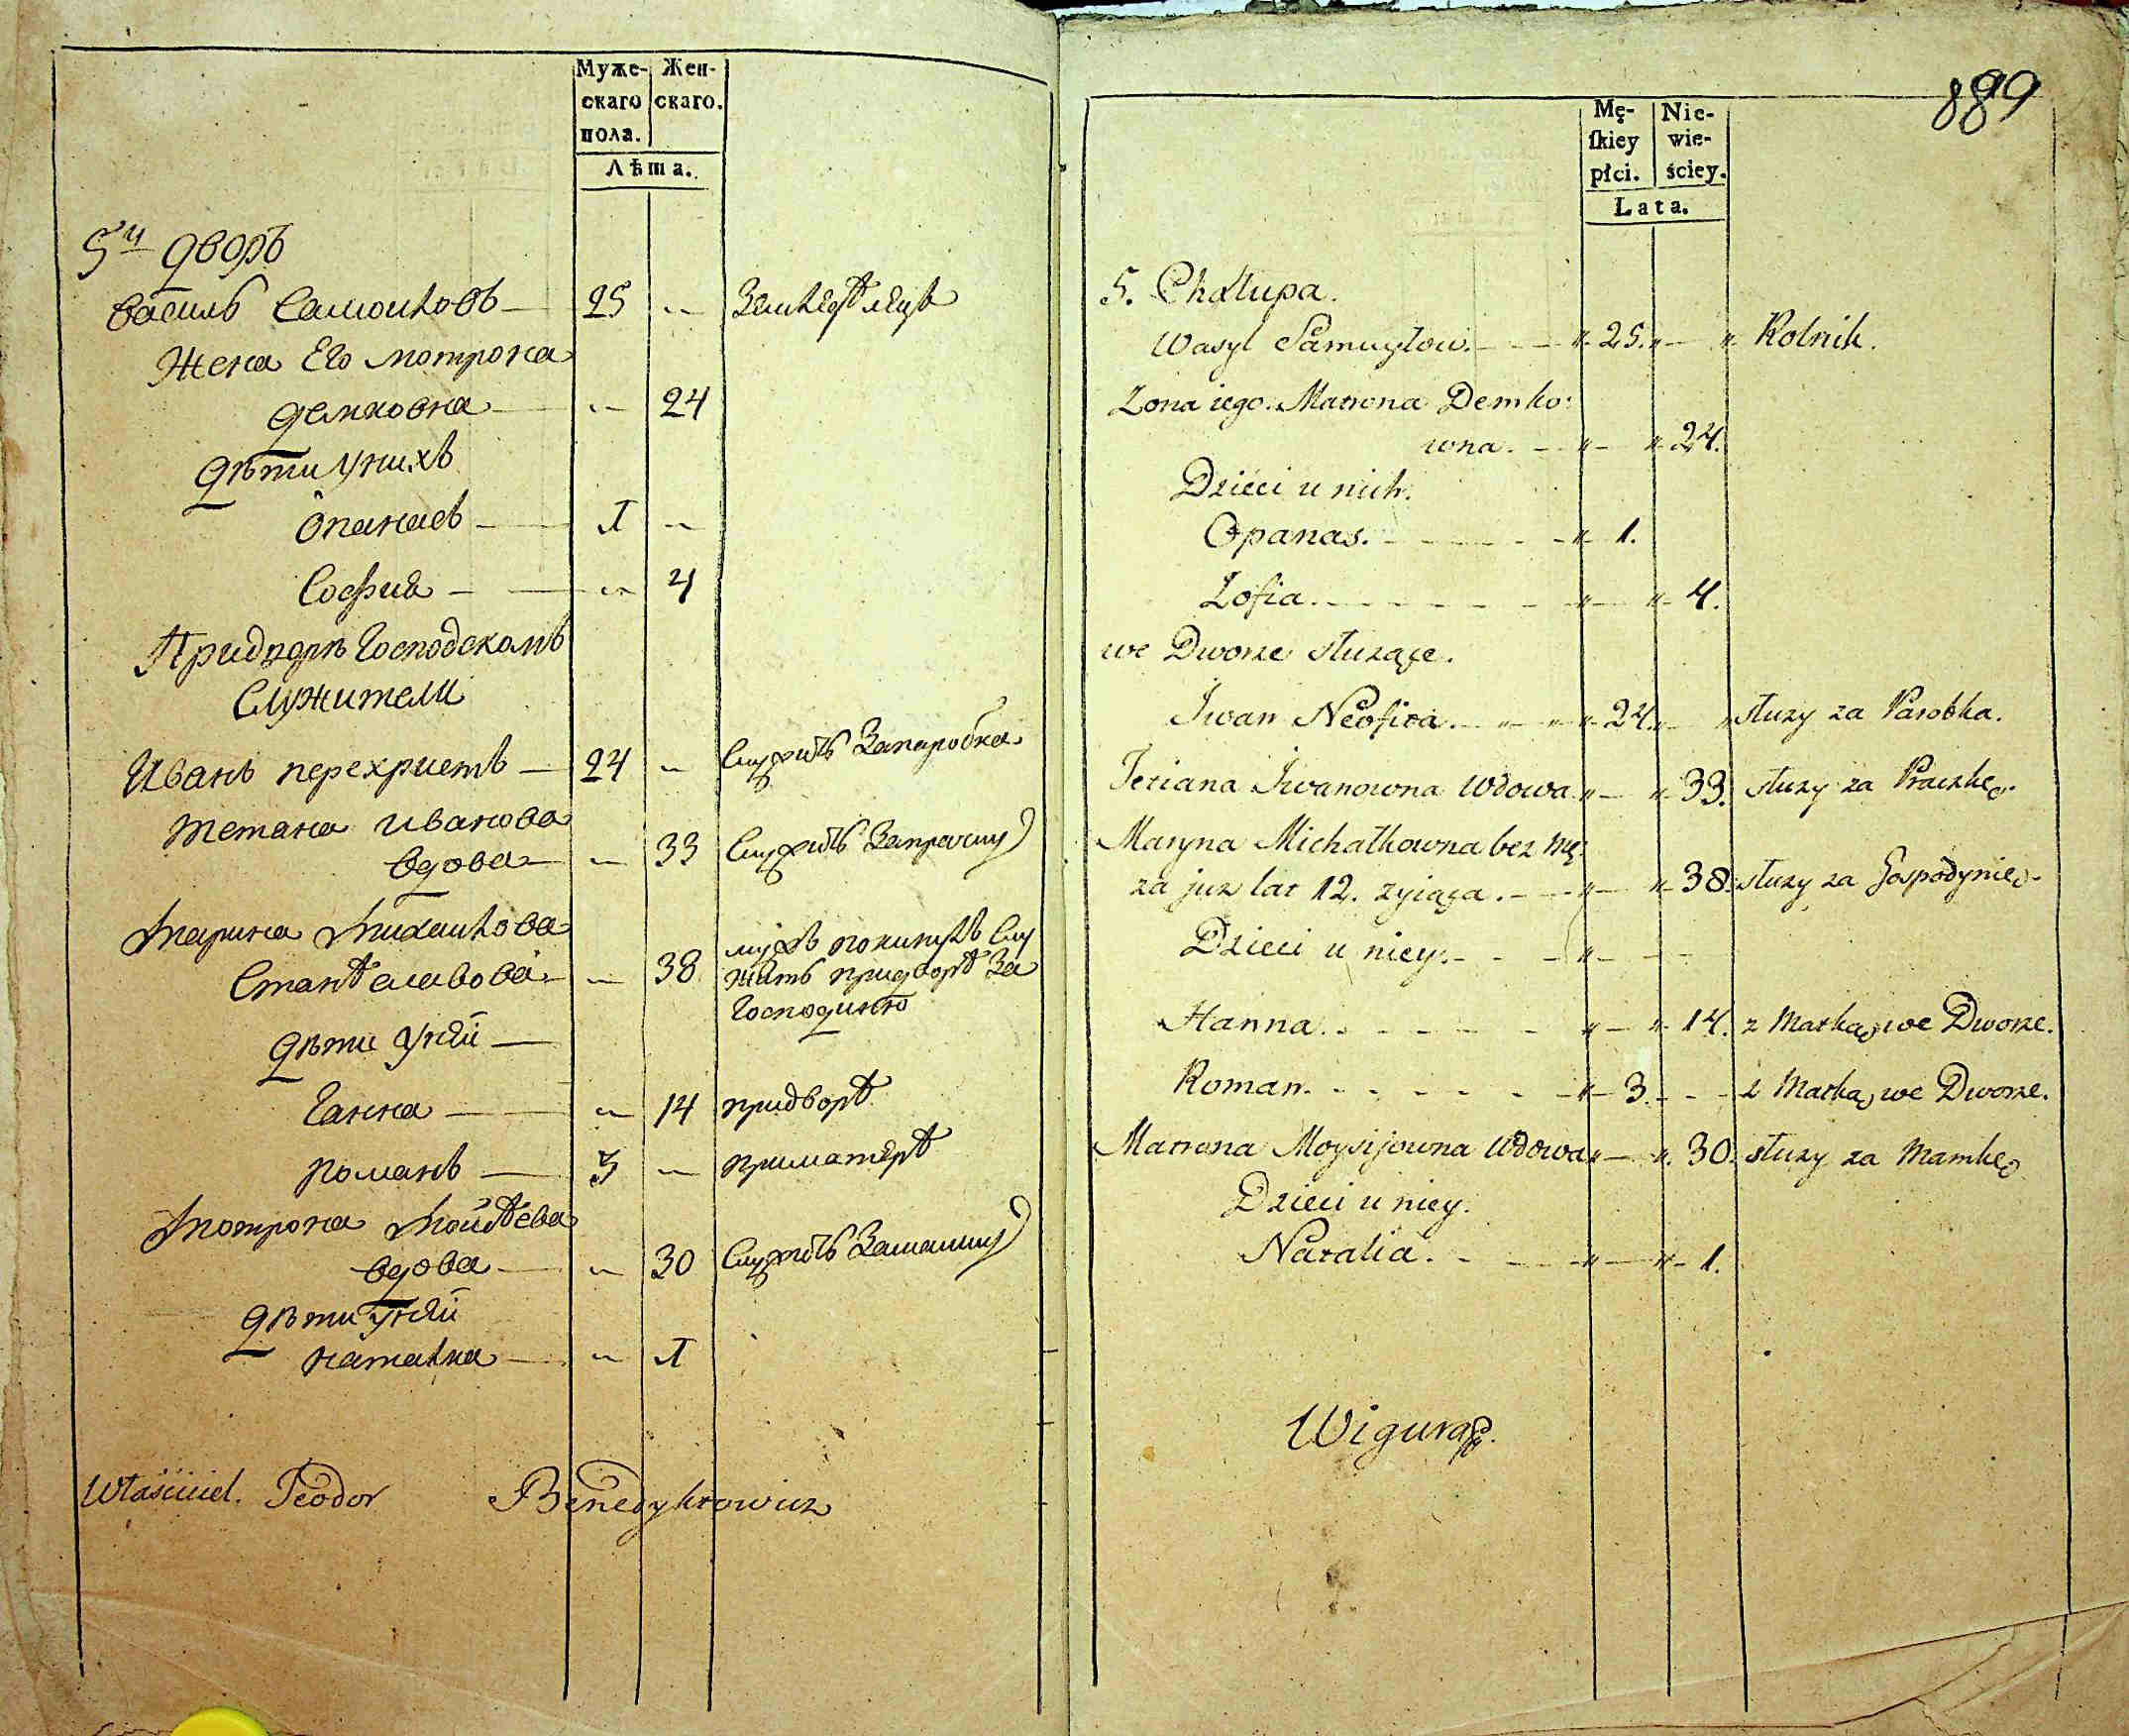 Муже- Жен-
скаго скаго.
пола.
Лѣта.
5й дворъ
Василь Самойловъ — 25 — Земледѣлецъ
Жена Его Мотрона
Демковна — — 24
Дѣти Унихъ
Опанасъ — 1 —
София — — 4
Придворѣ Господскомъ
Служители
Иванъ перехристъ — 24 — Служитъ Запаробка
Тетяна Иванова
вдова — — 33 Служитъ Запрачку
Марина Михайлова
Станѣславова — — 38 мужъ покинулъ Слу
жить придворѣ За
Господиню
Дѣти Унѣй —
Ганна — — 14 придворѣ
Романъ — 3 — приматерѣ
Мотрона Мойсѣева
вдова — — 30 Служитъ Замамку
Дѣти Унѣй
Наталка — — 1
Właściciel. Teodor Benedyktowicz
889
Mę- Nie-
ſkiey wie-
płci. ściey.
Lata.
5. Chałupa.
Wasyl Samuyłow. — „ 25. „ — „ Rolnik.
Zona iego. Matrona Demko:
wna. — „ — „ 24.
Dzieci u nich.
Opanas. — „ 1.
Zofia. — „ — „ 4.
we Dworze służące.
Iwan Neofita. — „ 24. „ — „ służy za Parobka.
Teciana Iwanowna Wdowa. „ — „ 33. służy za Praczkę.
Maryna Michałkowna bez mę:
za juz lat 12. zyiąca. — „ — „ 38. służy za Gospodynię.
Dzieci u niey. — „ —
Hanna. — „ — „ 14. z Matką we Dworze.
Roman. — „ 3. — z Matką we Dworze.
Matrona Moysijowna Wdowa „ — „ 30. służy za Mamkę
Dzieci u niey.
Natalia. — „ — „ 1.
Wigura